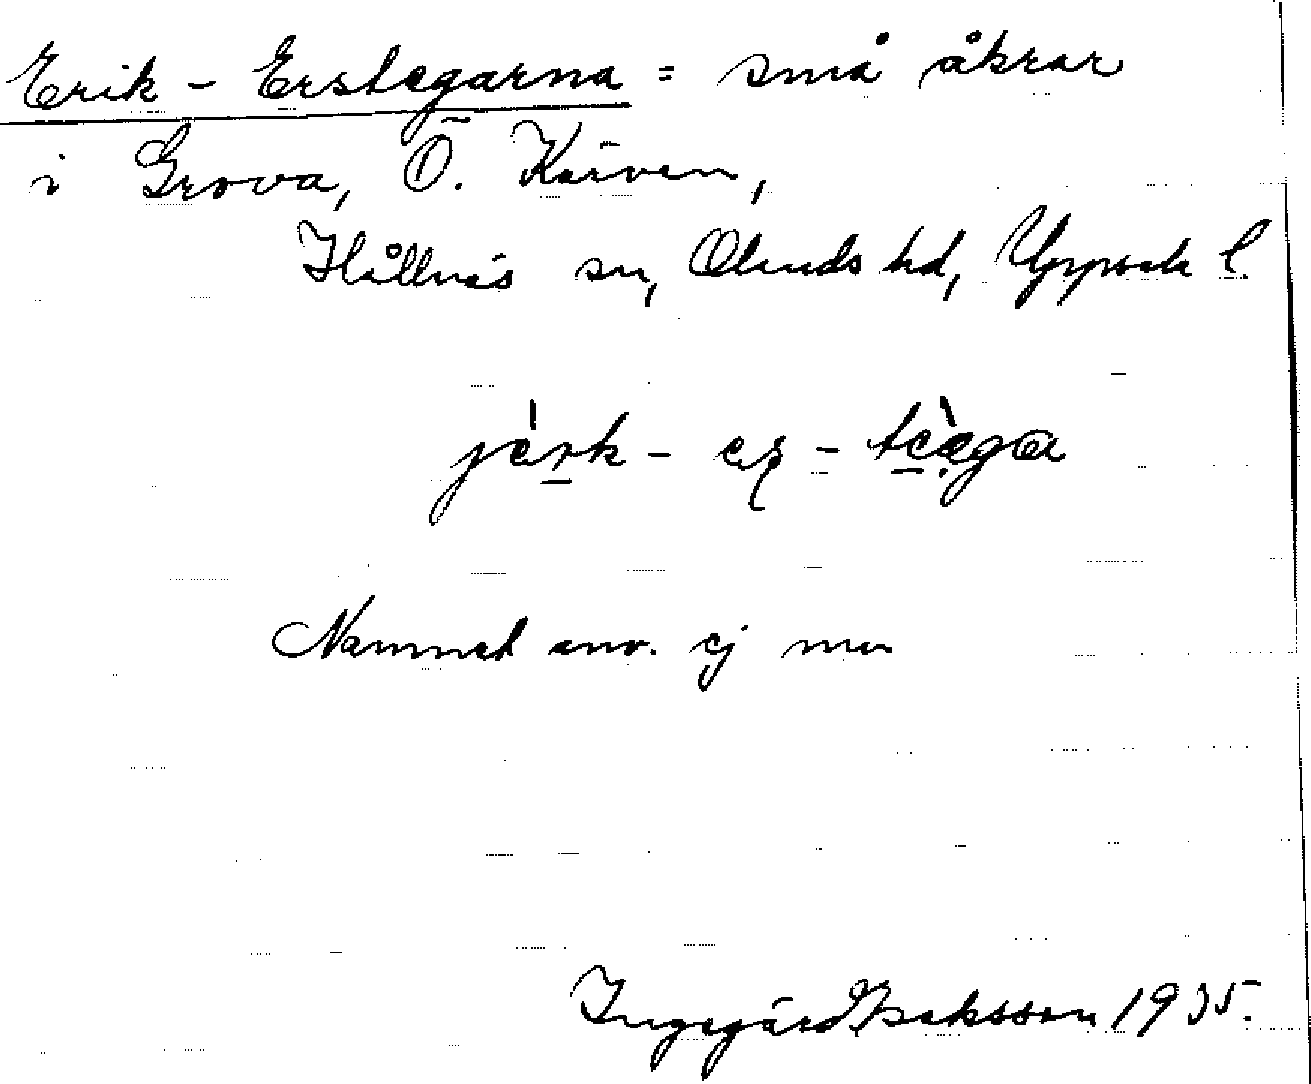 Erik-Erstegarna = små åkrar
i Grova, Ö. Kärven,
Hållnäs sn, Olands hd, Uppsala l.
jèrk-eʂ-tèæga
Namnet anv. ej mer
Ingegärd Isaksson 1935.